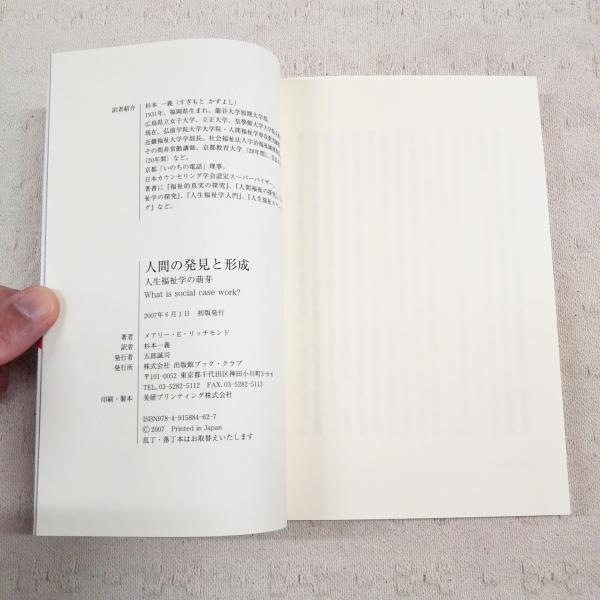 訳者紹介
杉本 一義（すぎもと かずよし）
1931年、福岡県生まれ。龍谷大学短期大学部、
広島県立女子大学、立正大学、皇學館大学大学院
現在、弘前学院大学大学院・人間福祉学専攻
近畿福祉大学学部長、社会福祉法人宇治福祉園
その間非常勤講師、京都教育大学（28年間）、
（20年間）など。
京都「いのちの電話」理事。
日本カウンセリング学会認定スーパーバイザー。
著書に『福祉的真実の探究』、『人間福祉の探究』
祉学の探究』、『人生福祉学入門』、『人生福祉カウン
グ』など。
人間の発見と形成
人生福祉学の萌芽
What is social case work?
2007年6月1日 初版発行
著者 メアリー・E・リッチモンド
訳者 杉本一義
発行者 五郎誠司
発行所 株式会社 出版館ブック・クラブ
〒101-0052 東京都千代田区神田小川町3-
TEL.03-5282-5112 FAX.03-5282-5113
印刷・製本 美研プリンティング株式会社
ISBN978-4-915884-62-7
©2007 Printed in Japan
乱丁・落丁本はお取替えいたします